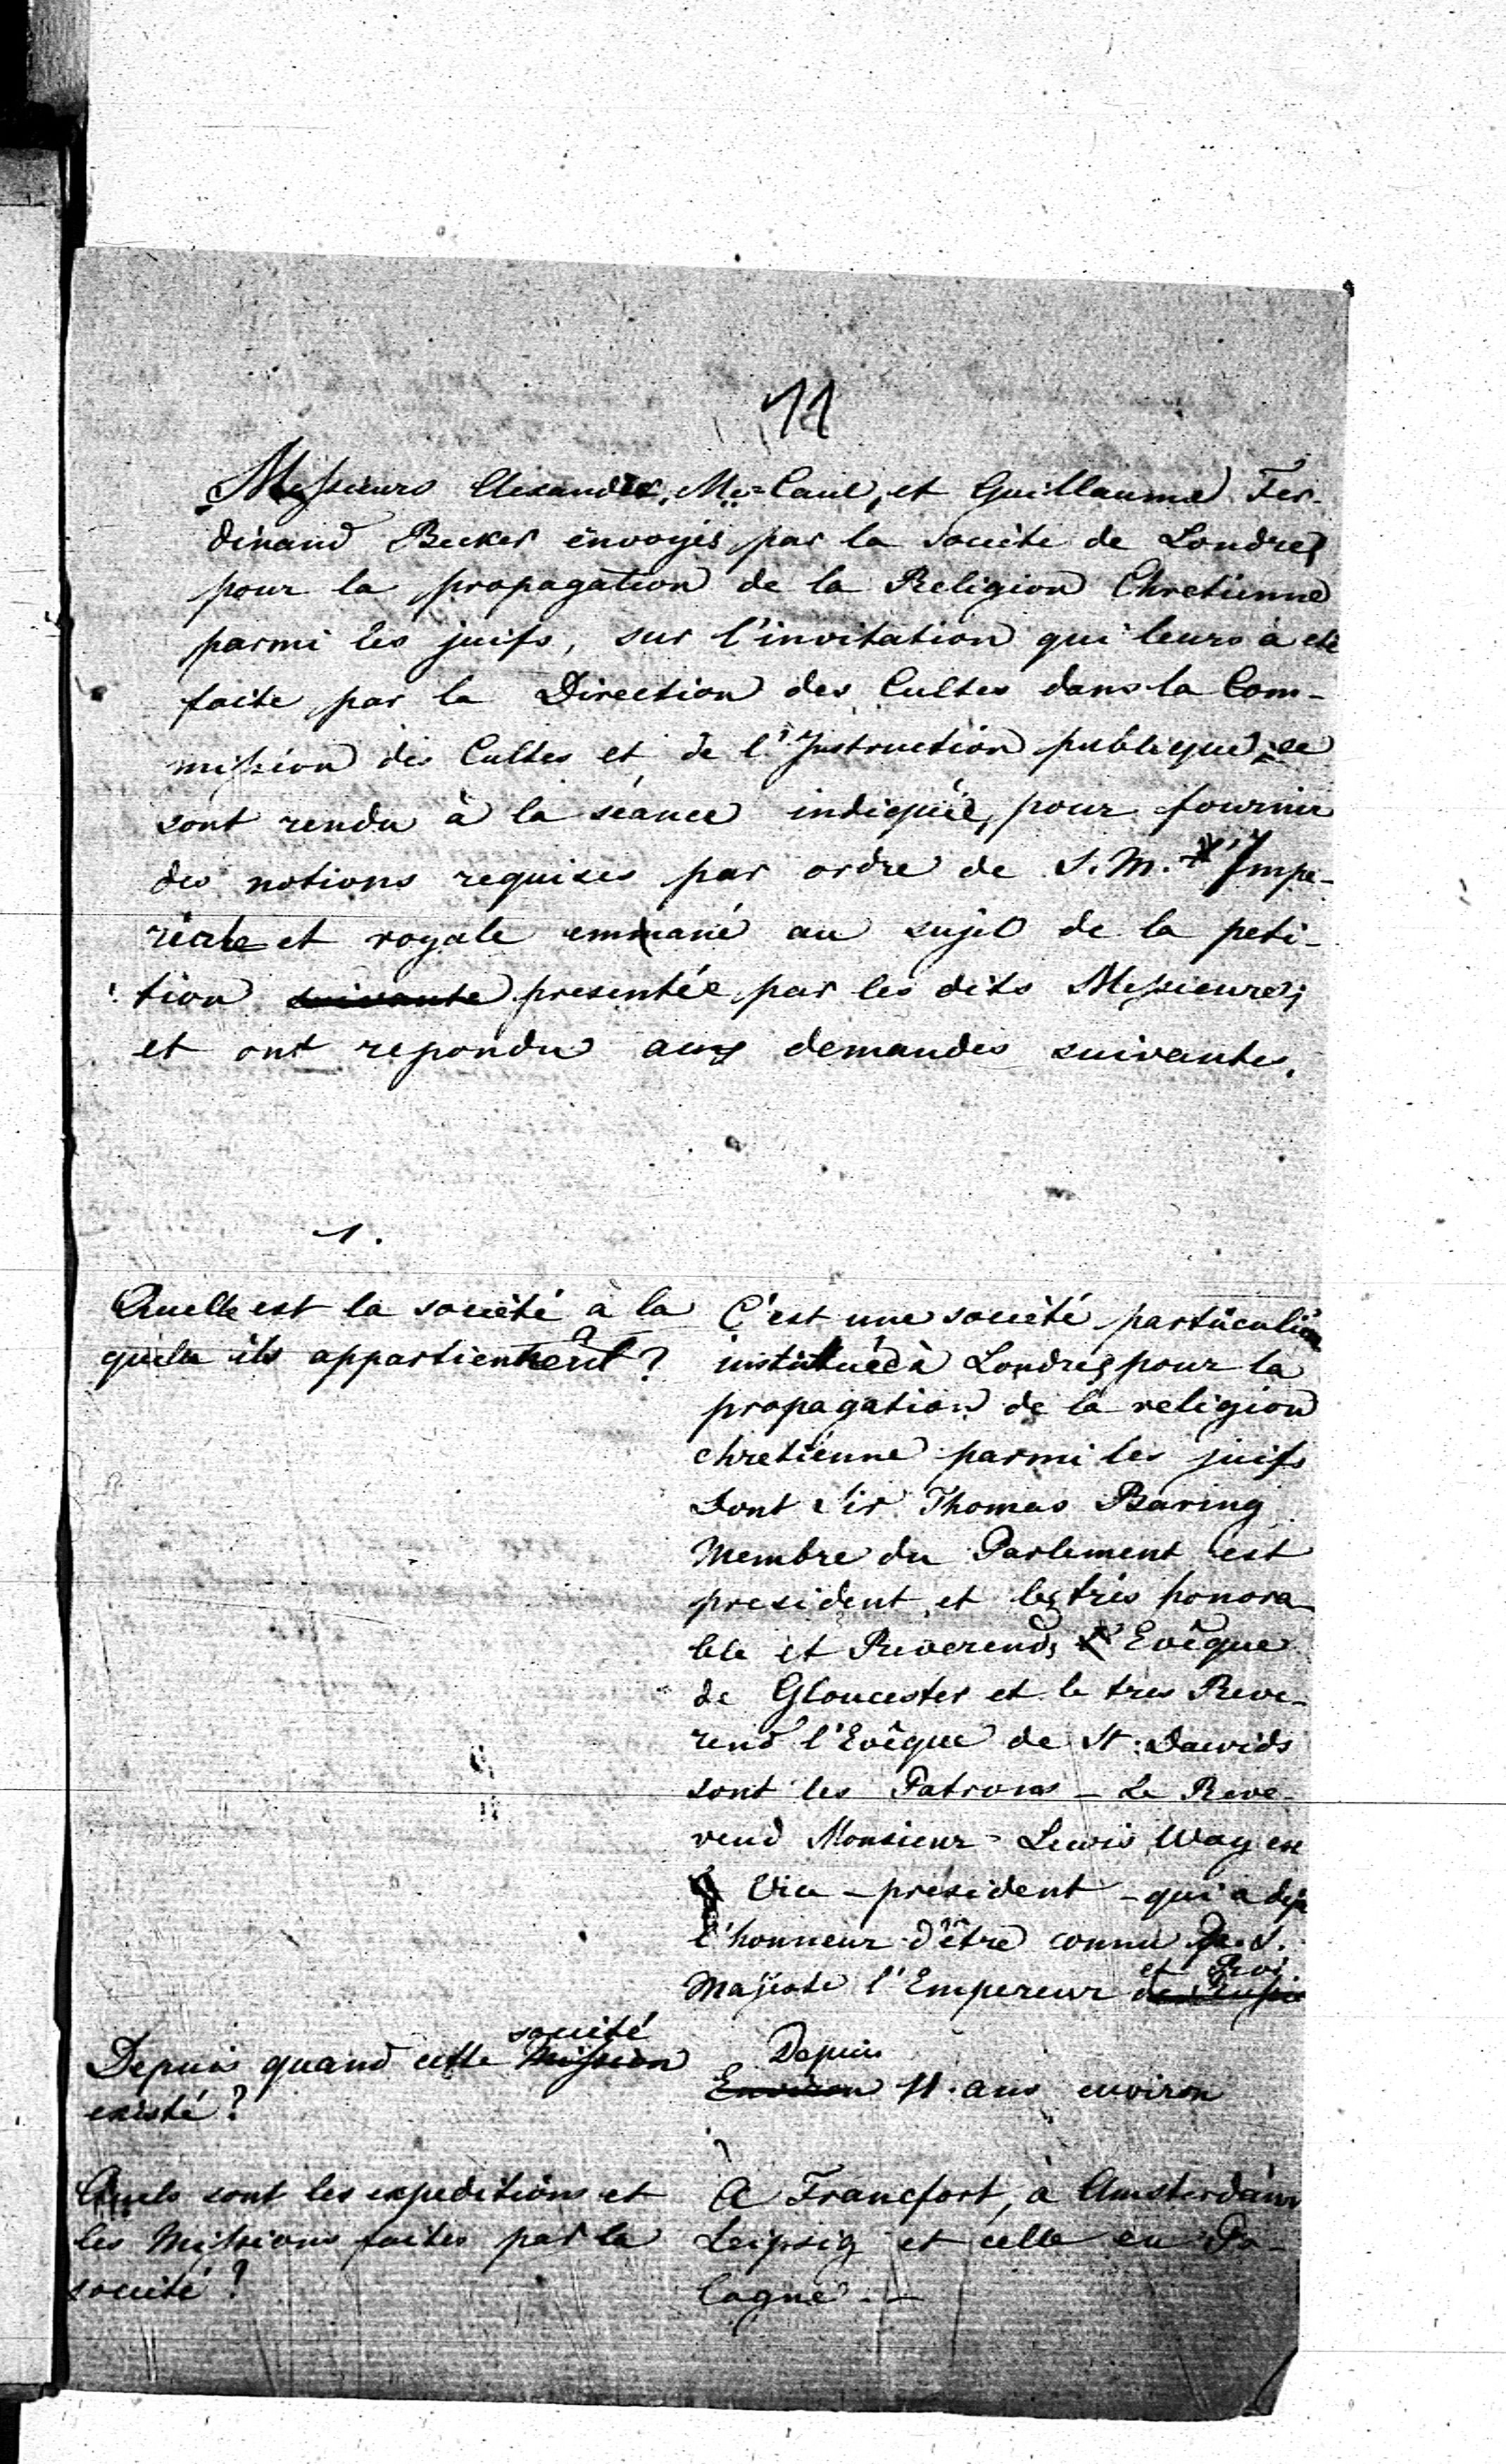 11
Messieurs Alexandre Mc=Caul, et Guillaume Fer-
dinand Becker envoyés par la societe de Londres
pour la propagation de la Religion Chretienne
parmi les juifs, sur l'invitation qui leurs à eté
faite par la Direction des Cultes dans la Com-
mission des Cultes et de l'Instruction publique, se
sont rendu à la séance indiquée, pour fournir
des notions requises par ordre de S. M. Impe-
riale et royale emmané au sujet de la peti-
tion suivante presentée par les dits Messieurs,
et ont repondu aux demandes suivantes.
1.
Quelle est la société à la
quelle ils appartiennent?
C'est une société particuliere
instituée à Londres pour la
propagation de la religion
chretienne parmi les juifs
dont Sir Thomas Baring
Membre du Parlement est
president, et les trés honora-
ble et Reverends Evêque
de Gloucester et le tres Reve-
rend l'Evêque de St: Dawids
sont les Patrons - Le Reve-
rend Monsieur Lewis Way en
Vice-président - qui a deja
l'honneur d'être connu de S.
et Roi
Majeste l'Empereur de Russie
société
Depuis quand cette Mission
existé?
Depuis
Environ 11. ans environ
Quels sont les expeditions et
les Missions faites par la
societé?
A Francfort, à Amsterdam
Leipsig et celle en Po-
logne. -